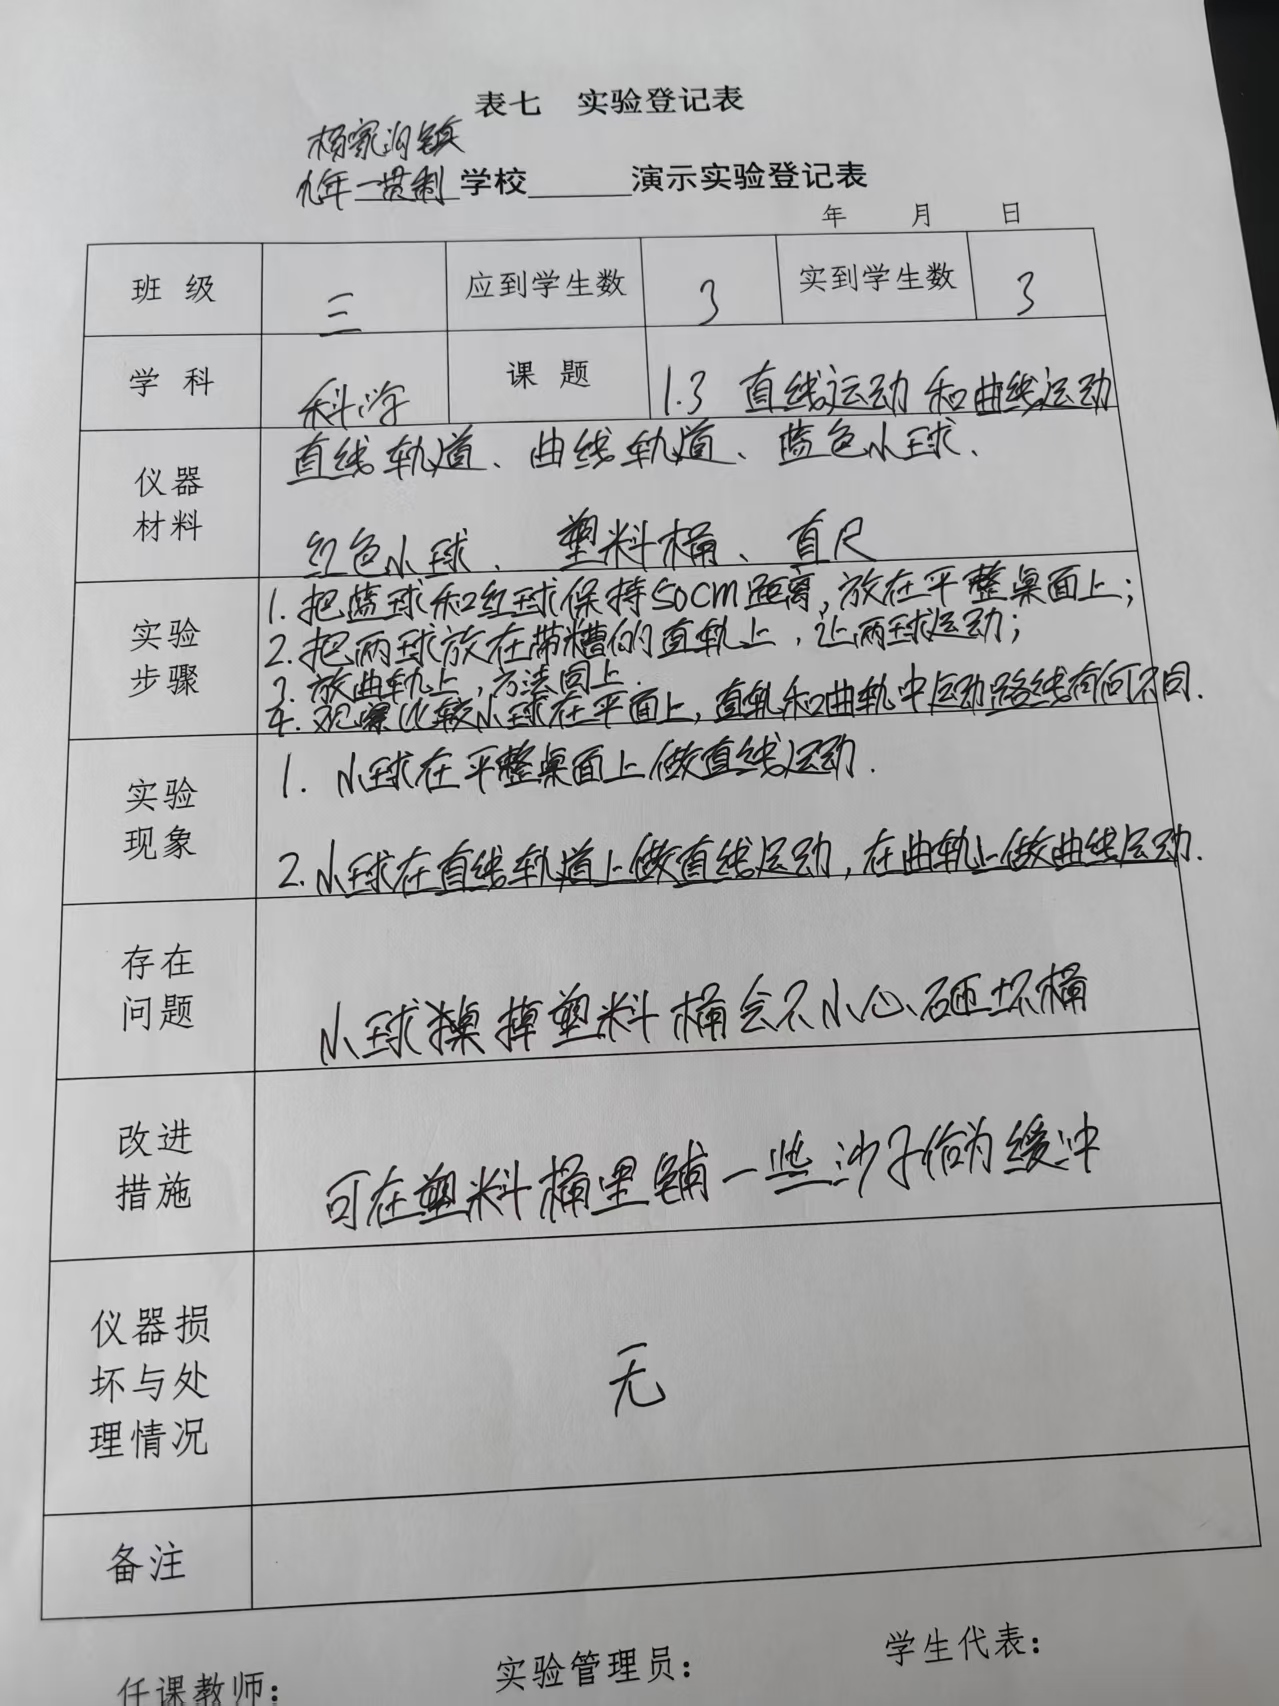 表七 实验登记表
杨家沟镇
九年一贯制学校______演示实验登记表
年 月 日
班级 三 应到学生数 3 实到学生数 3
学科 科学 课题 1.3 直线运动和曲线运动
仪器材料
直线轨道、曲线轨道、蓝色小球、
红色小球、塑料桶、直尺
实验步骤
1. 把蓝球和红球保持50cm距离,放在平整桌面上;
2. 把两球放在带槽的直轨上,让两球运动;
3. 放曲轨上,方法同上.
4. 观察比较小球在平面上,直轨和曲轨中运动路线有何不同.
实验现象
1. 小球在平整桌面上做直线运动.
2. 小球在直线轨道上做直线运动,在曲轨上做曲线运动.
存在问题
小球掉塑料桶会不小心砸坏桶
改进措施
可在塑料桶里铺一些沙子作为缓冲
仪器损坏与处理情况
无
备注
任课教师: 实验管理员: 学生代表: